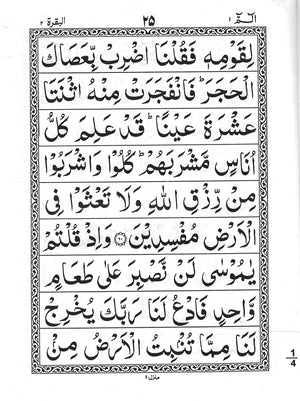 الٓمّٓ ١ ٢٥ البقرة ٢
لِقَوْمِهٖ فَقُلْنَا اضْرِبْ بِّعَصَاكَ
الْحَجَرَ ؕ فَانْفَجَرَتْ مِنْهُ اثْنَتَا
عَشْرَةَ عَيْنًا ؕ قَدْ عَلِمَ كُلُّ
اُنَاسٍ مَّشْرَبَهُمْ ؕ كُلُوْا وَاشْرَبُوْا
مِنْ رِّزْقِ اللّٰهِ وَلَا تَعْثَوْا فِى
الْاَرْضِ مُفْسِدِيْنَ ﴿٦٠﴾ وَاِذْ قُلْتُمْ
يٰمُوْسٰى لَنْ نَّصْبِرَ عَلٰى طَعَامٍ
وَّاحِدٍ فَادْعُ لَنَا رَبَّكَ يُخْرِجْ
لَنَا مِمَّا تُنْۢبِتُ الْاَرْضُ مِنْۢ
منزل ١
١/٤